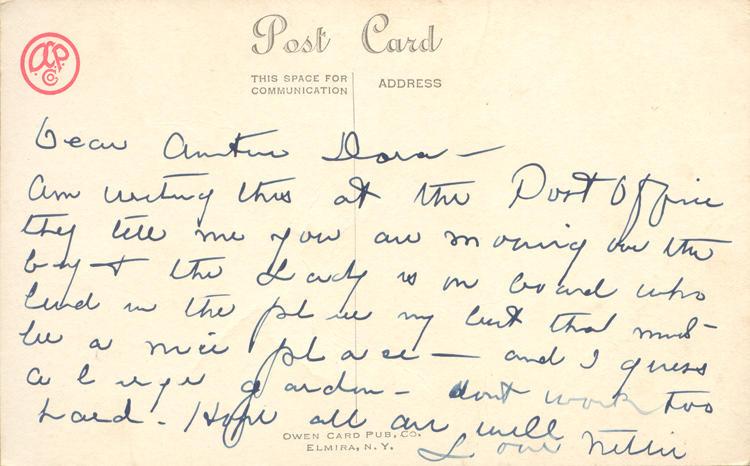 Post Card
THIS SPACE FOR
COMMUNICATION
ADDRESS
Dear Dora —
Am writing this at the Post Office
they tell me you are moving over the
+ the Lady is on board who
lived in the place my but that must
be a nice place — and I guess
a large garden - dont work too
hard. Hope all are well
OWEN CARD PUB. CO.
ELMIRA, N.Y.
Love Nellie